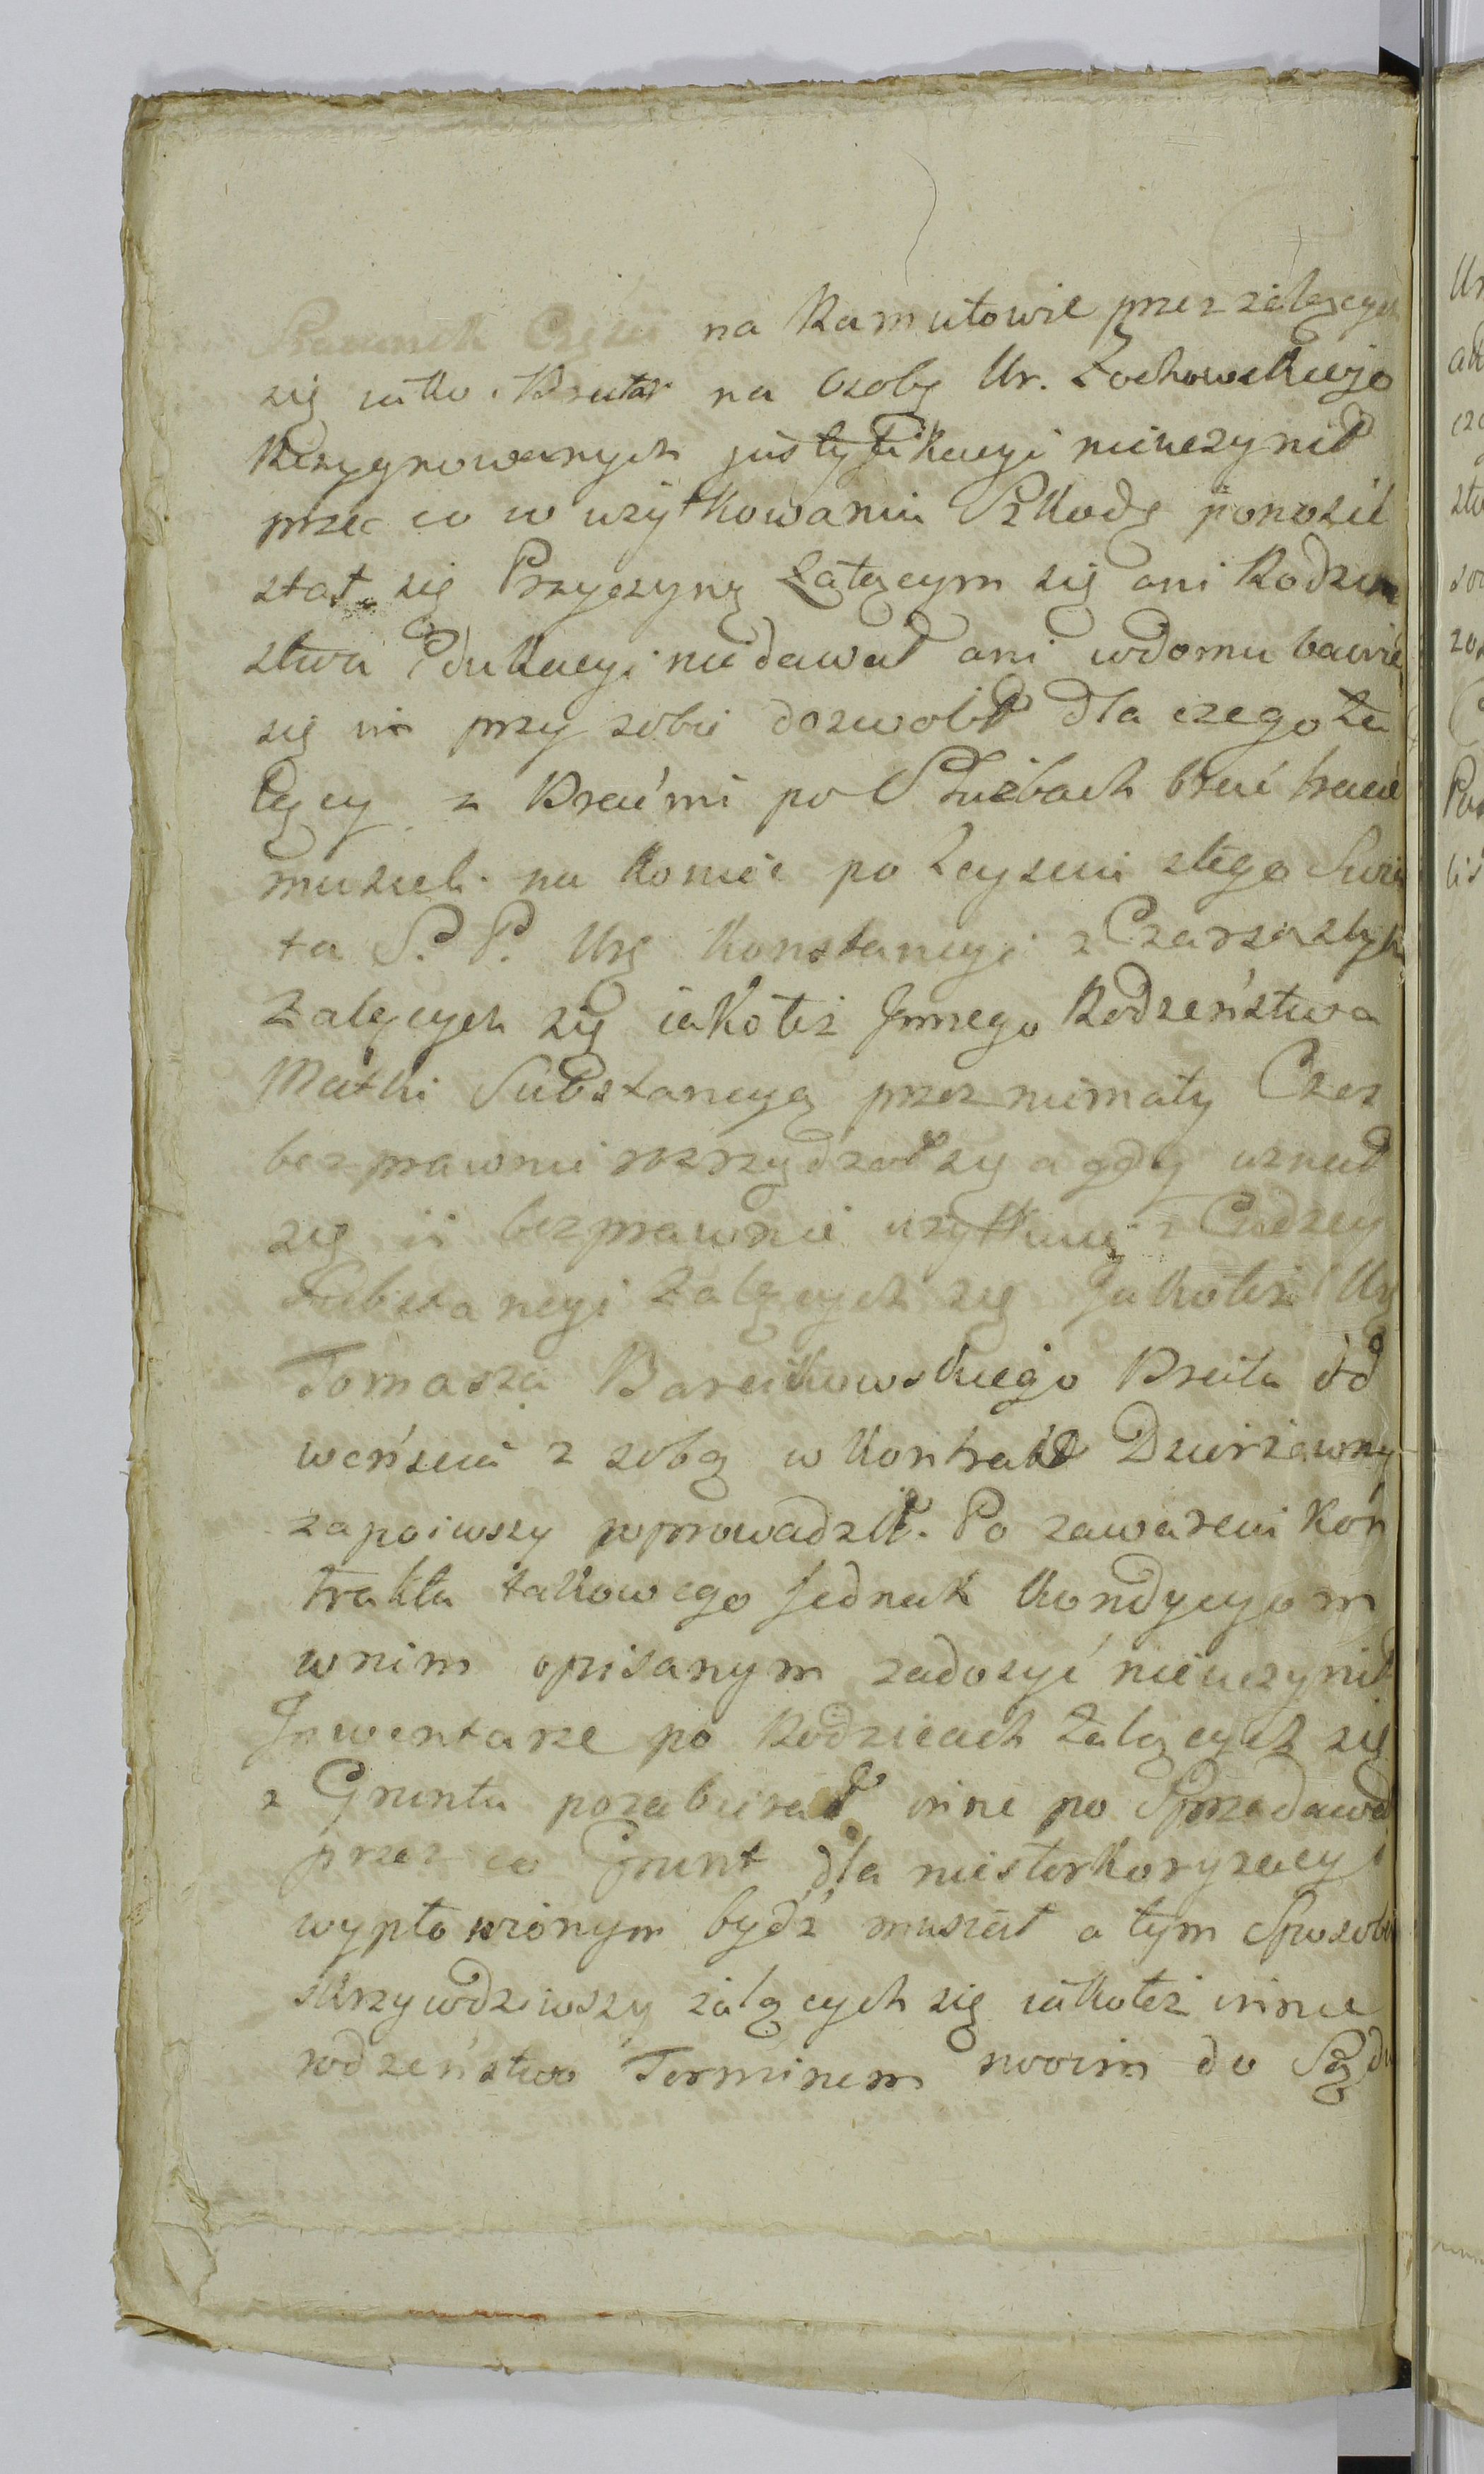 na Kamutowie przez żalącym
się iako Brata na Osobę Ur. Żochowskiego
Rezygnowanych justyfikacyi nieuczynił
przez co w użytkowaniu Szkodę ponosić
stał się Przyczyną Żalącym się ani Rodzeń
stwu Edukacyi niedawał ani wdomu bawić
się im przy sobie dozwolił dla czego Ża
lący z Braćmi po Służbach bydź
musieli na koniec po Zeysciu ztego Swia
ta S. P. Urz Konstancyi z Czarzastych
Żalących się iakoteż Innego Rodzeństwa
Matki Substancyą przez niemały Czas
bezprawnie rozrządzał się a gdy uznał
się iż bezprawnie użytkuię z Cudzey
Substancyi Żalących się Jakoteż Ur
Tomasza Bareikowskiego Brata od
wenscia z sobą w Kontrakt Dzierżawny
zapoiwszy wprowadził. Po zawarciu Kon
traktu takowego Jednak Kondycyom
wnim opisanym zadosyć nieuczynił
Inwentarze po Rodzicach Żalących się
z Gruntu pozabierał inne po Sprzedawał
przez co Grunt dla niesterkoryzacyi
wypłonionym bydź musiał a tym Sposobem
skrzywdziwszy żalących się iakoteż inne
rodzeństwo Terminem swoim do Sądu